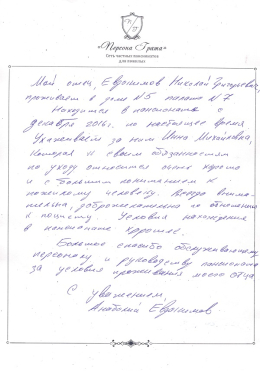 «Персона Грата»
Сеть частных пансионатов
для пожилых
Мой отец, Евдокимов Николай Григорьевич,
проживает в доме №5 палата №7
Находится в пансионате с
декабря 2016г. по настоящее время
Ухаживает за ним Инна Михайловна,
которая к своим обязанностям
по уходу относится очень хорошо
и с большим вниманием к
пожилому человеку. Всегда внима-
тельна, доброжелательна по отношению
к пациенту Условия нахождения
в пансионате хорошие.
Большое спасибо обслуживающему
персоналу и руководству пансионата
за условия проживания моего отца.
С уважением,
Анатолий Евдокимов